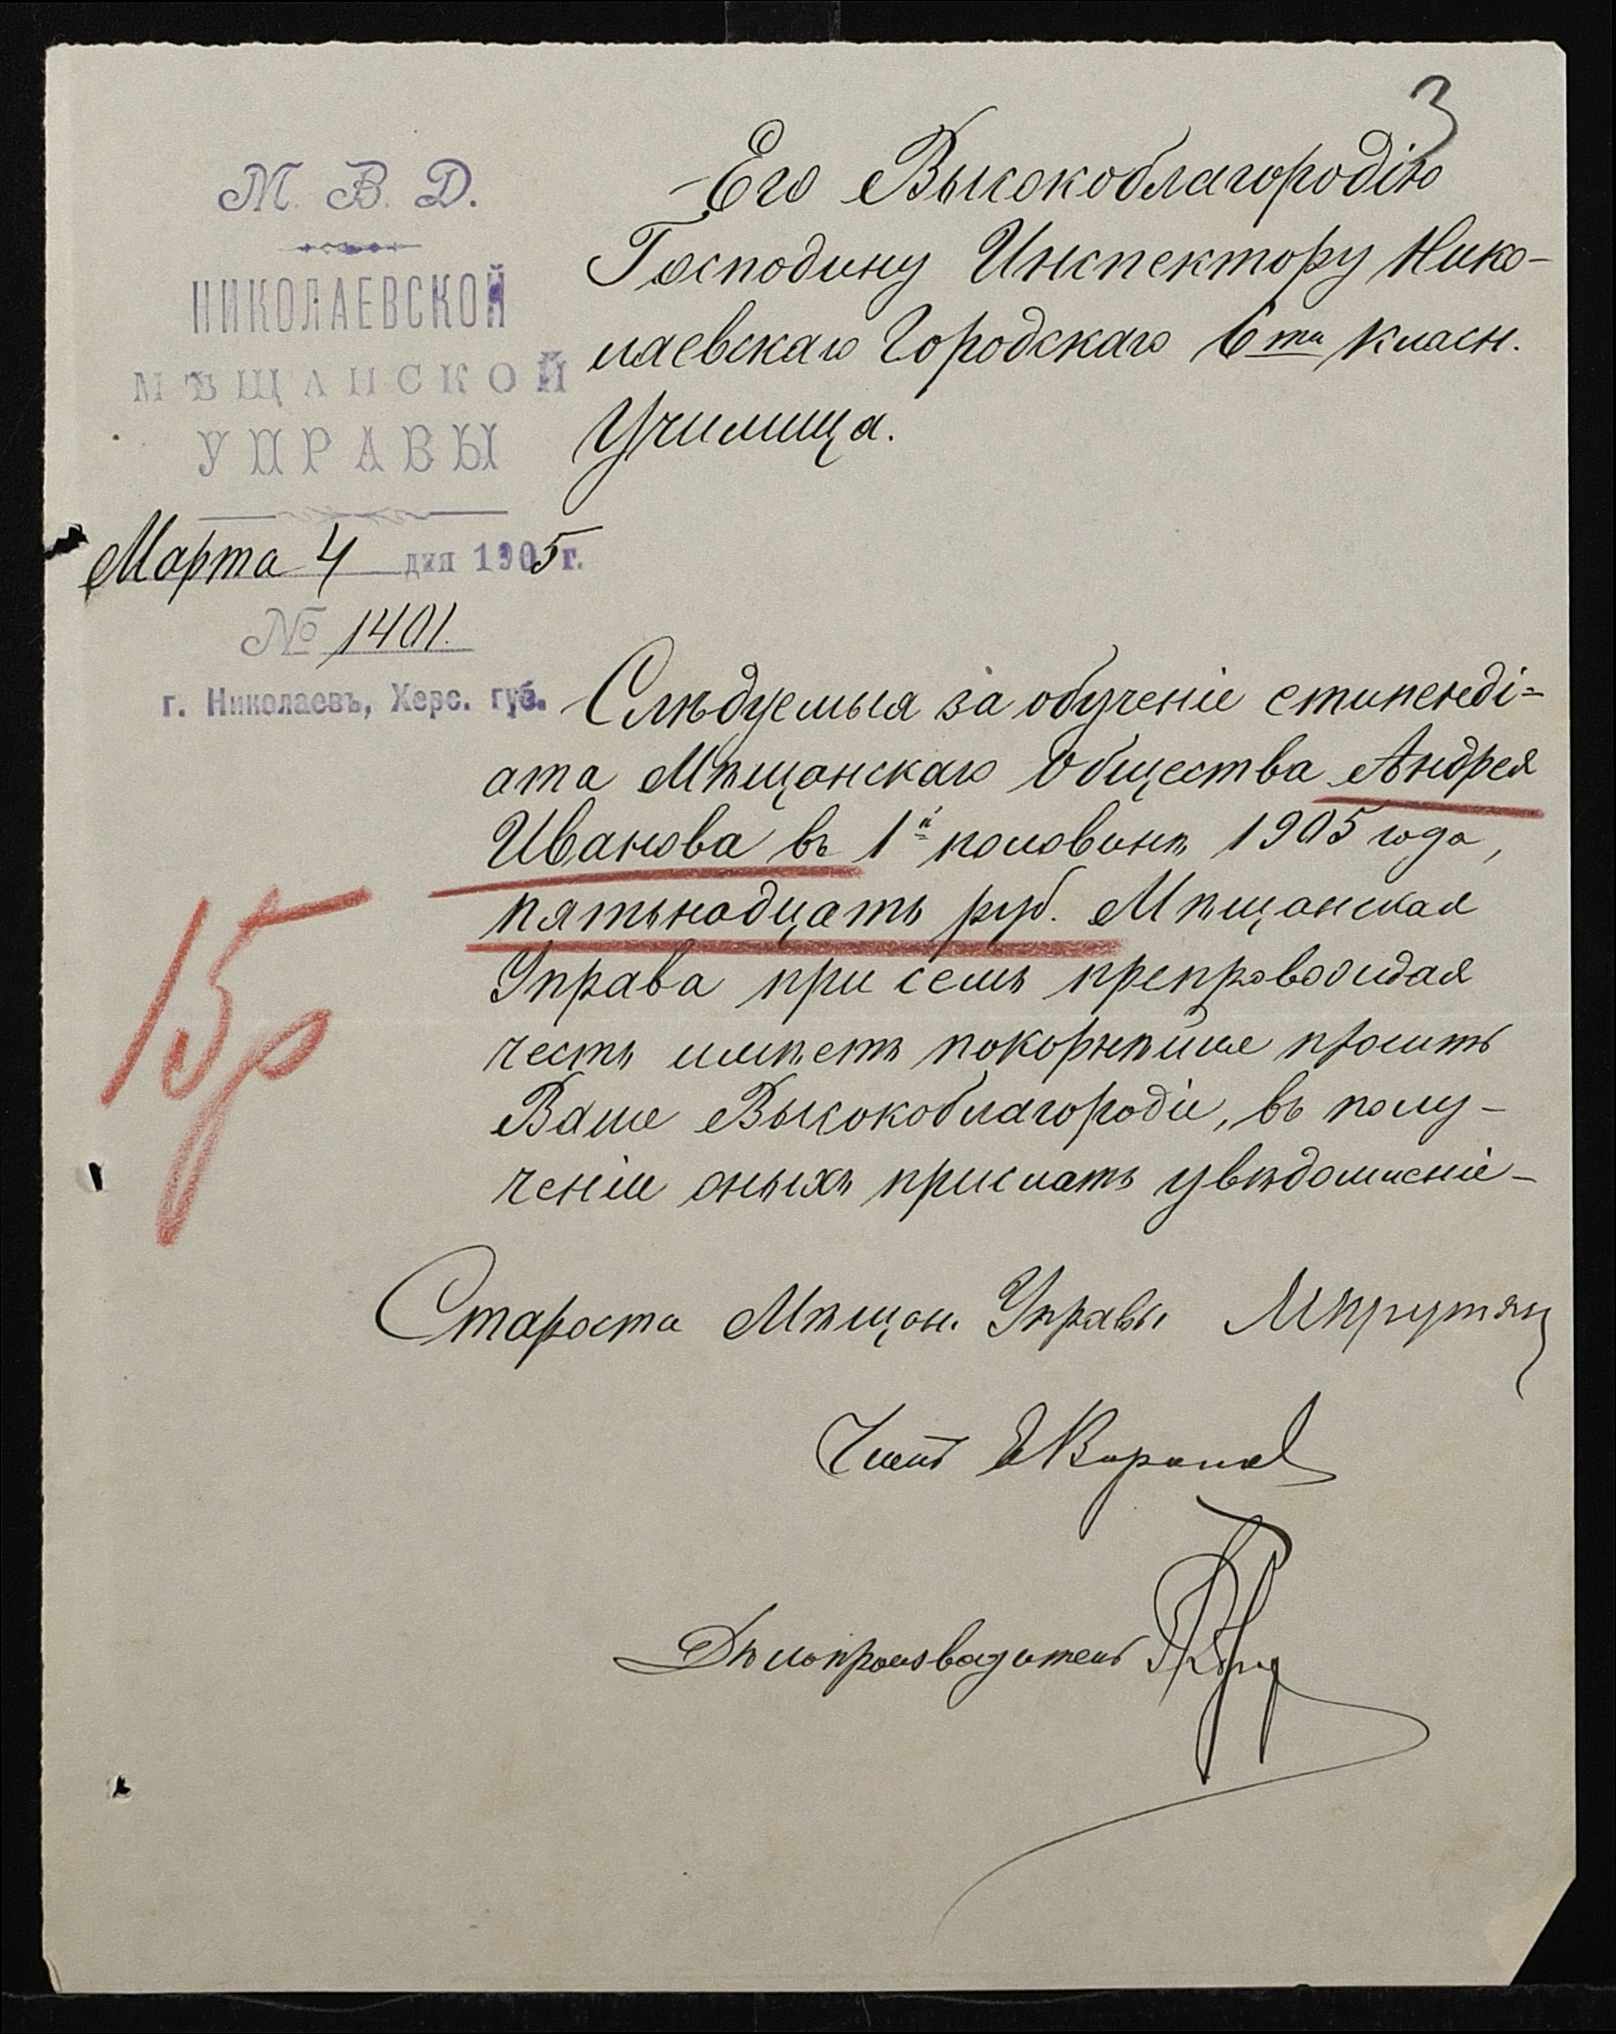 3
М. В. Д.
НИКОЛАЕВСКОЙ
МѢЩАНСКОЙ
УПРАВЫ
Марта 4 дня 1905 г.
№ 1401.
г. Николаевъ, Херс. губ.
Его Высокоблагородію
Господину Инспектору Нико-
лаевскаго Городскаго 6ти класн.
Училища.
Слѣдуемыя за обученіе стипенді=
ата Мѣщанскаго Общества Андрея
Иванова въ 1й половинѣ 1905 года,
пятьнадцать руб. Мѣщанская
Управа при семъ препровождая
честь имѣетъ покорнѣйше просить
Ваше Высокоблагородіе, въ полу-
ченіи оныхъ прислать увѣдомленіе-
15р
Староста Мѣщан. Управы
Членъ
Дѣлопроизводитель